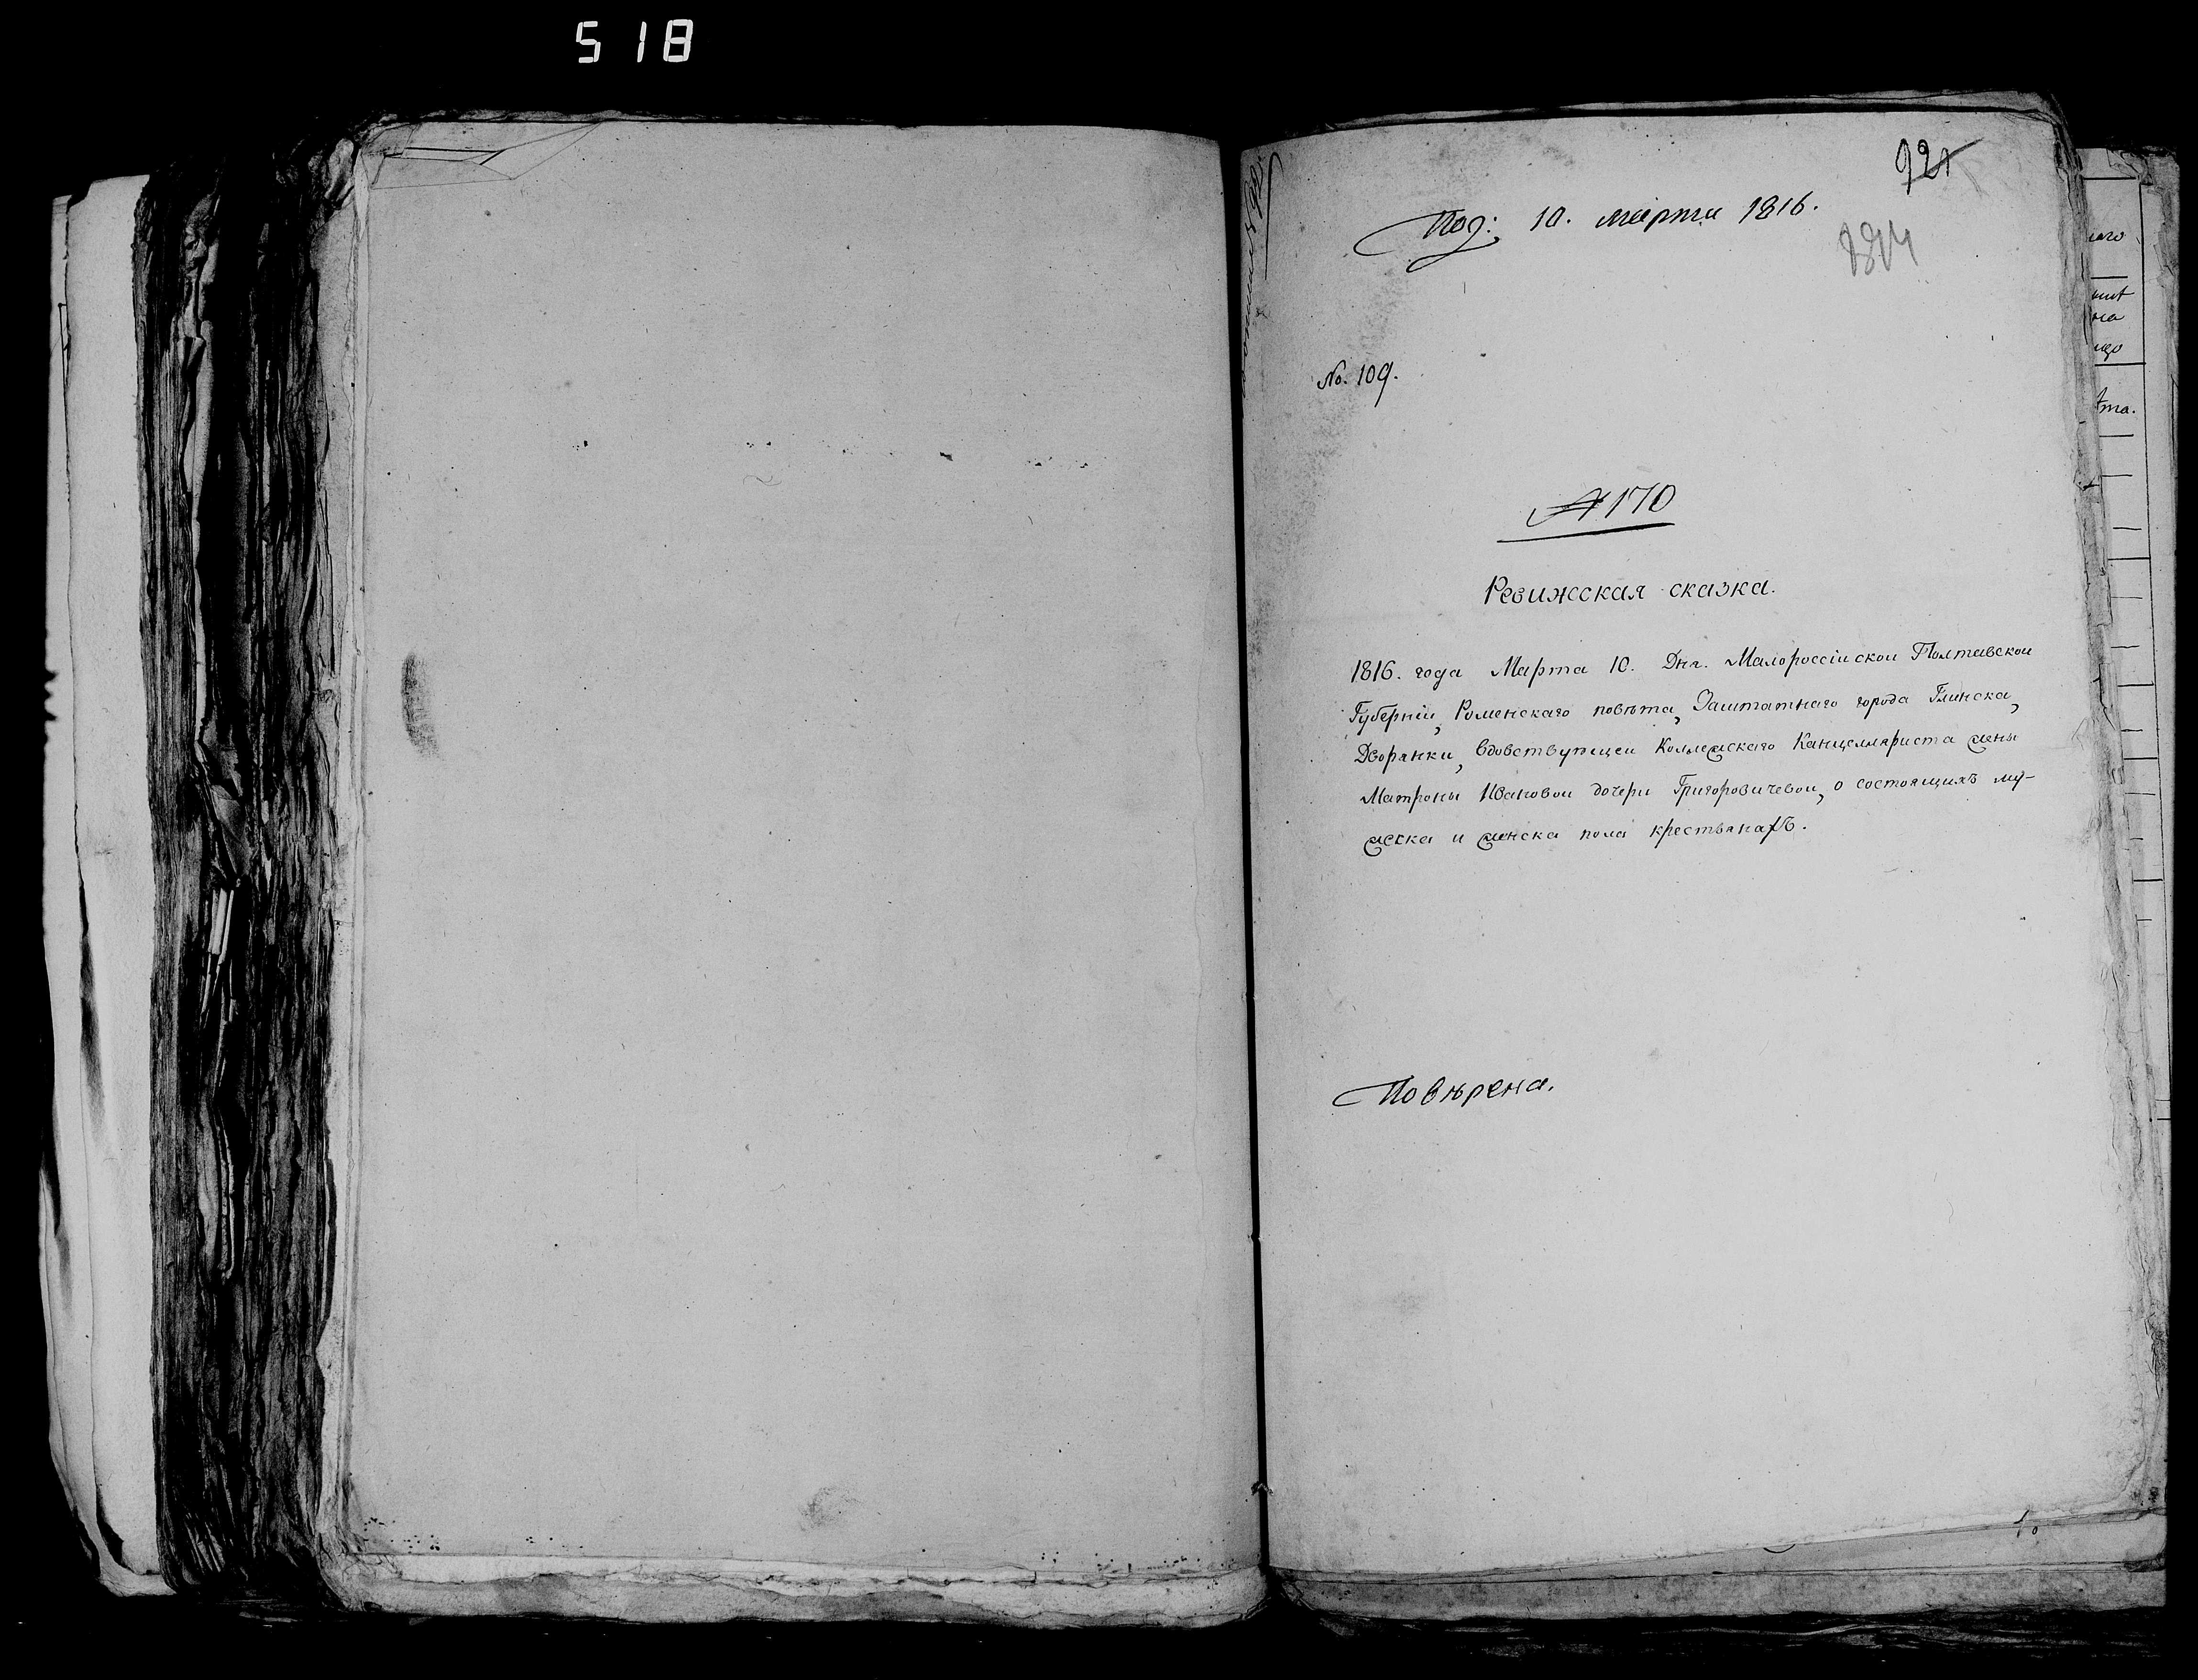 518
921
Под: 10. марта 1816.
No. 109.
№ 170
Ревижская сказка.
1816. года Марта 10. Дня. Малороссійской Полтавской
Губерніи, Роменскаго повѣта, Заштатнаго города Глинска,
Дворянки, вдовствующей Коллежскаго Канцеляриста жены
Матроны Ивановой дочери Григоровичевой, о состоящихъ му-
жеска и женска пола крестьянахъ.
Повѣрена.